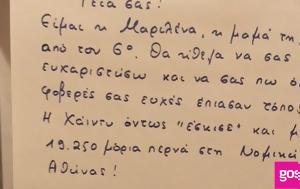 Γεια σας!
Είμαι η Μαριλένα, η μαμά της
από τον 6°. Θα ήθελα να σας
ευχαριστήσω και να σας πω ό
φοβερές σας ευχές έπιασαν τόπο
Η Χάιντυ όντως "έσκισε" και μ
19.250 μόρια περνά στη Νομικ
Αθήνας!
gos